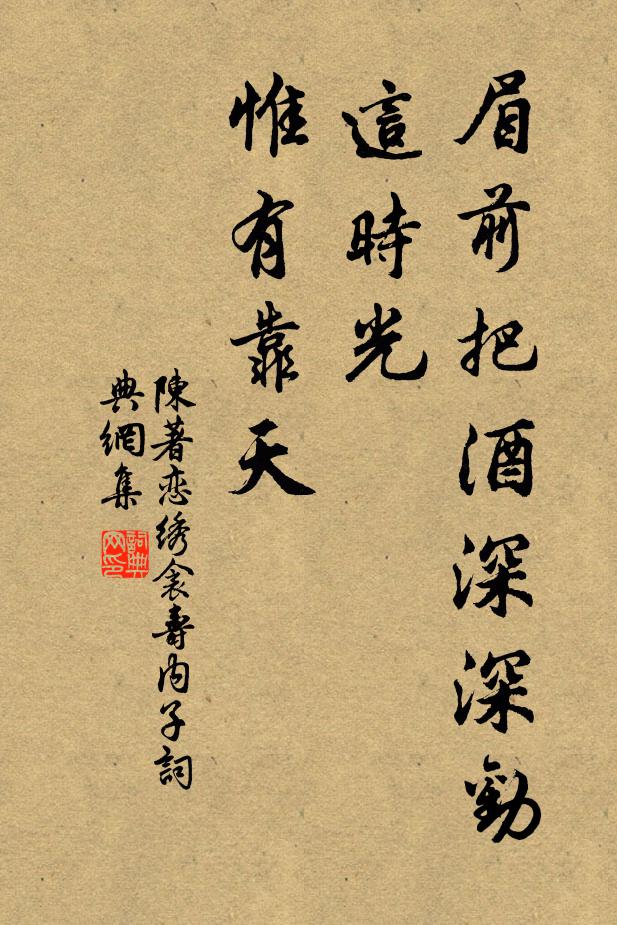 眉前把酒深深勸
這時光
惟有靠天
陳著恋绣衾壽内子詞
典網集
詞典
网印